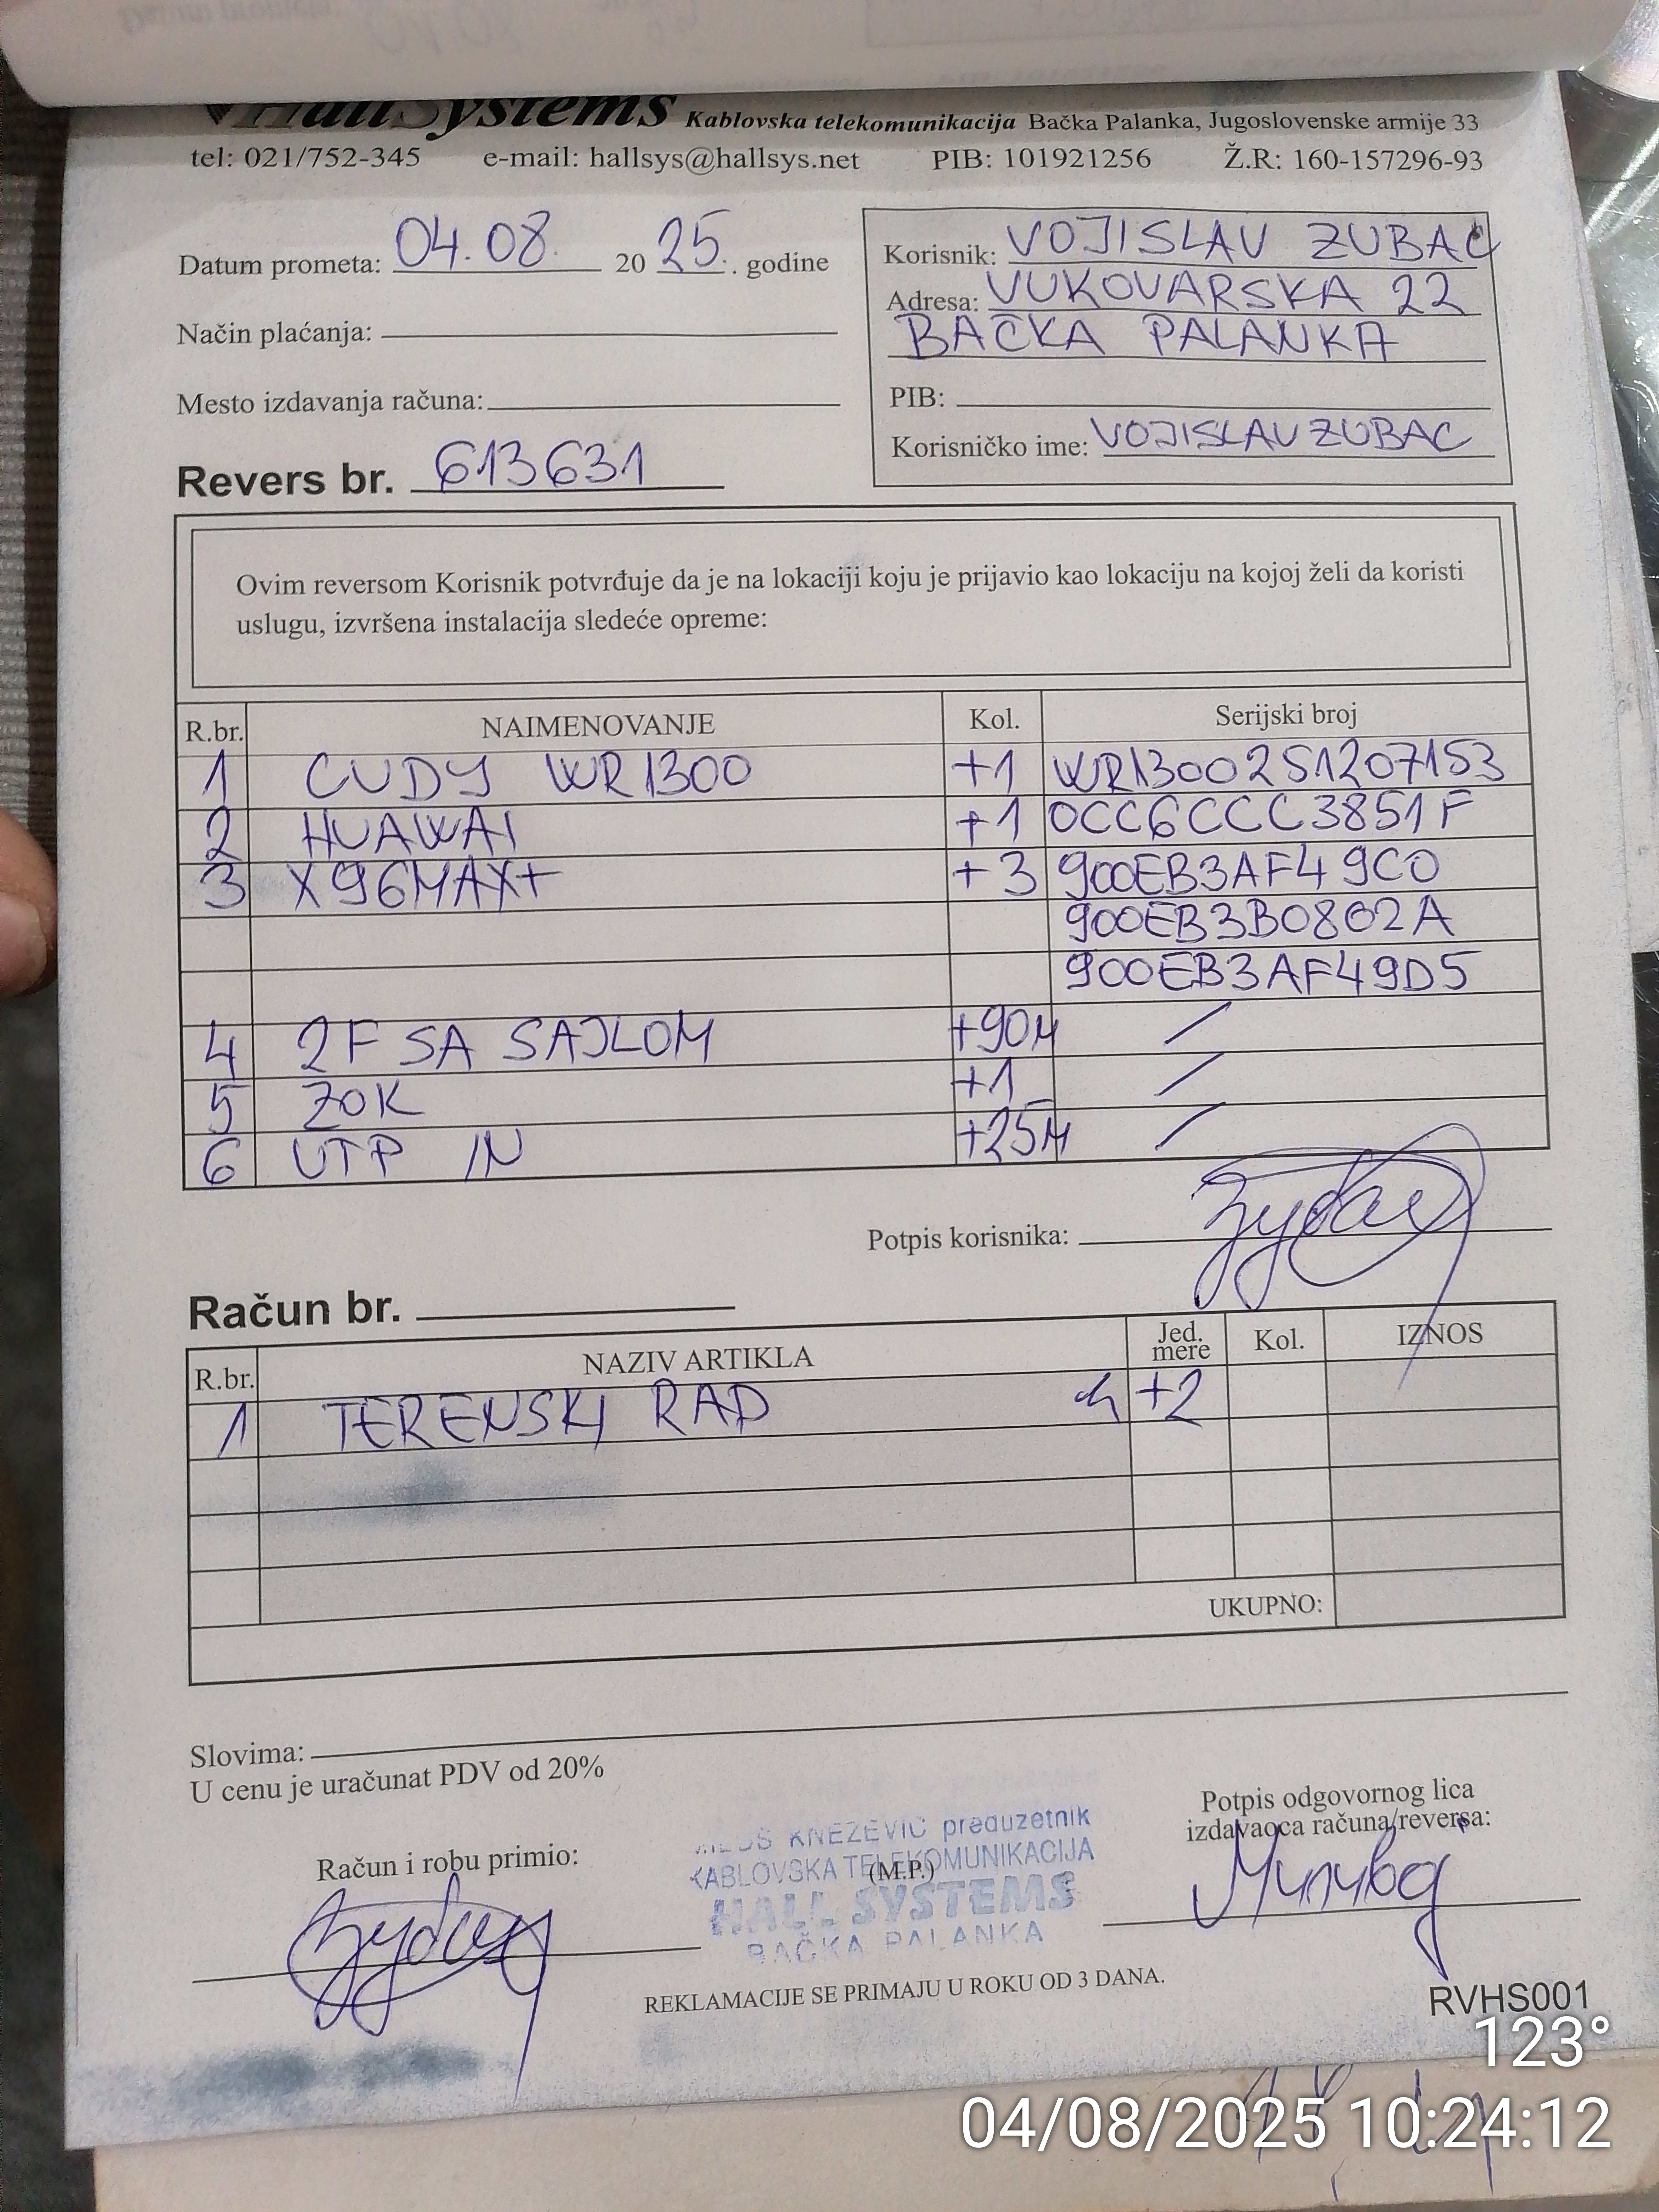 HallSystems Kablovska telekomunikacija Bačka Palanka, Jugoslovenske armije 33
tel: 021/752-345 e-mail: hallsys@hallsys.net PIB: 101921256 Ž.R: 160-157296-93
Datum prometa: 04.08. 20 25. godine
Način plaćanja:
Mesto izdavanja računa:
Revers br. 613631
Korisnik: VOJISLAV ZUBAC
Adresa: VUKOVARSKA 22
BAČKA PALANKA
PIB:
Korisničko ime: VOJISLAVZUBAC
Ovim reversom Korisnik potvrđuje da je na lokaciji koju je prijavio kao lokaciju na kojoj želi da koristi
uslugu, izvršena instalacija sledeće opreme:
R.br. NAIMENOVANJE Kol. Serijski broj
1 CUDY WR1300 +1 WR13002S1207153
2 HUAWAI +1 0CC6CCC3851F
3 X96MAX+ +3 900EB3AF49C0
900EB3B0802A
900EB3AF49D5
4 2F SA SAJLOM +90M /
5 ZOK +1 /
6 UTP IN +25M /
Potpis korisnika:
Račun br.
R.br. NAZIV ARTIKLA Jed. mere Kol. IZNOS
1 TERENSKI RAD h +2
UKUPNO:
Slovima:
U cenu je uračunat PDV od 20%
Račun i robu primio:
KNEŽEVIĆ preduzetnik
KABLOVSKA TELEKOMUNIKACIJA
(M.P.)
HALL SYSTEMS
BAČKA PALANKA
Potpis odgovornog lica
izdavaoca računa/reversa:
REKLAMACIJE SE PRIMAJU U ROKU OD 3 DANA.
RVHS001
123°
04/08/2025 10:24:12